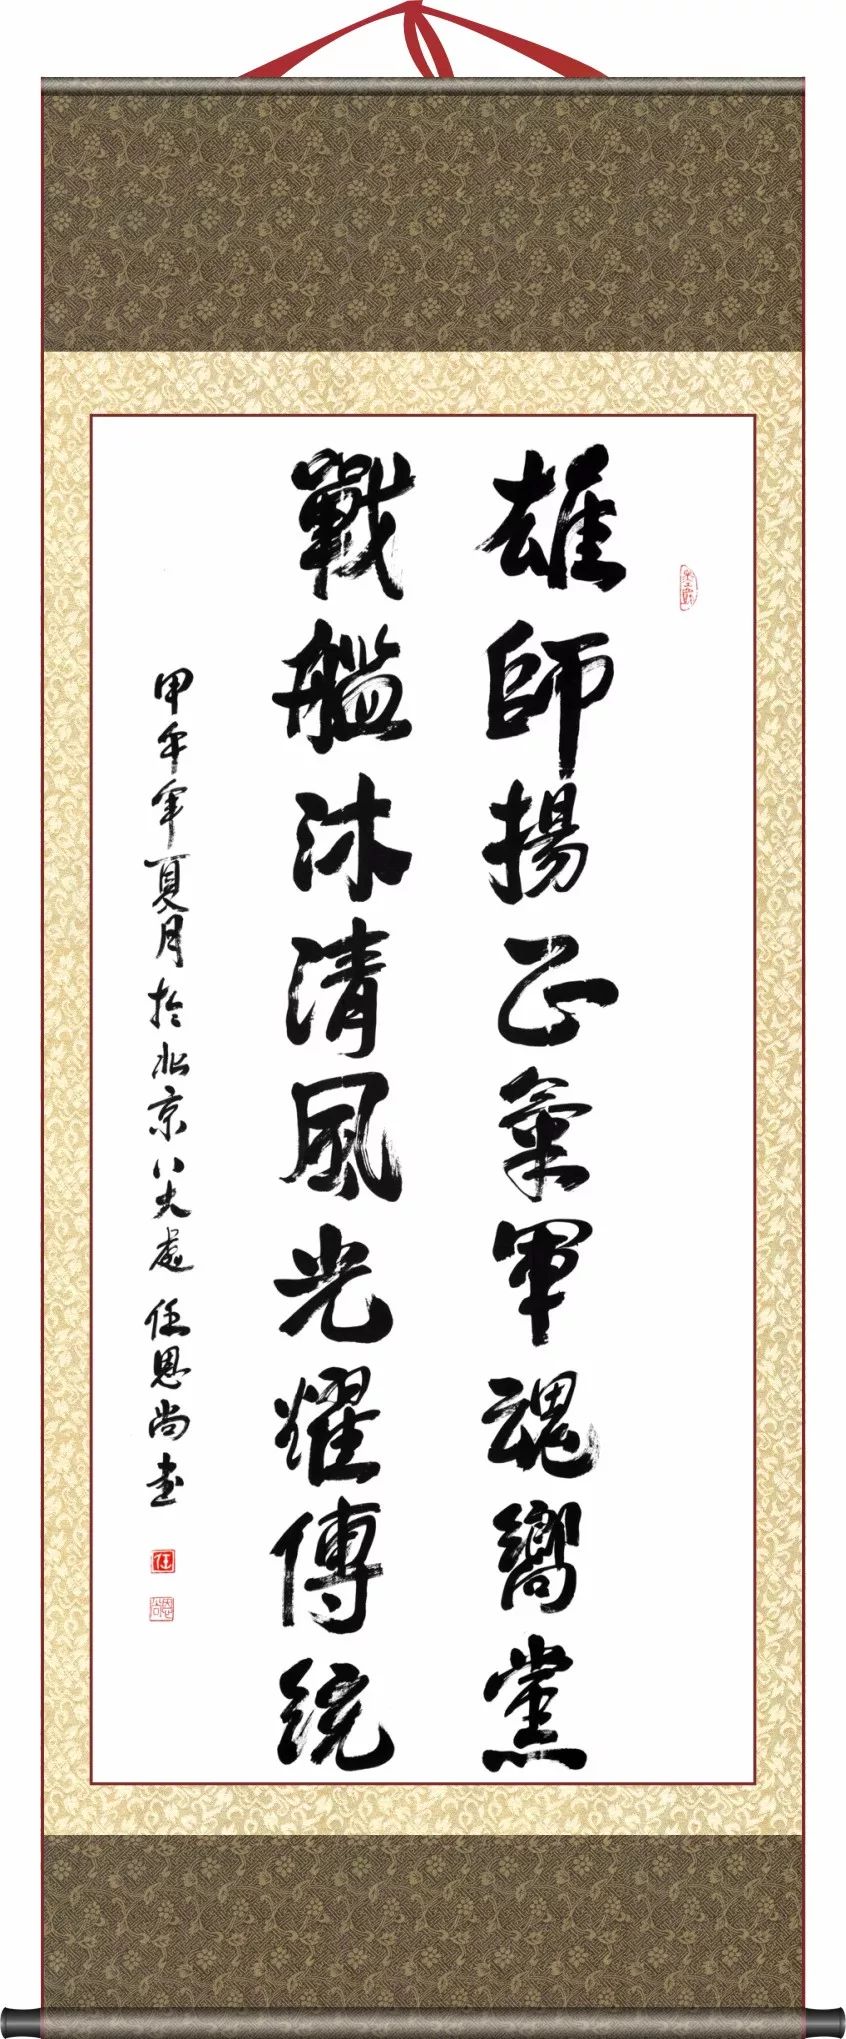 雄師揚正氣軍魂嚮黨
戰艦沐清風光耀傳統
甲午年夏月於北京八大處任恩尚書
任
恩尚